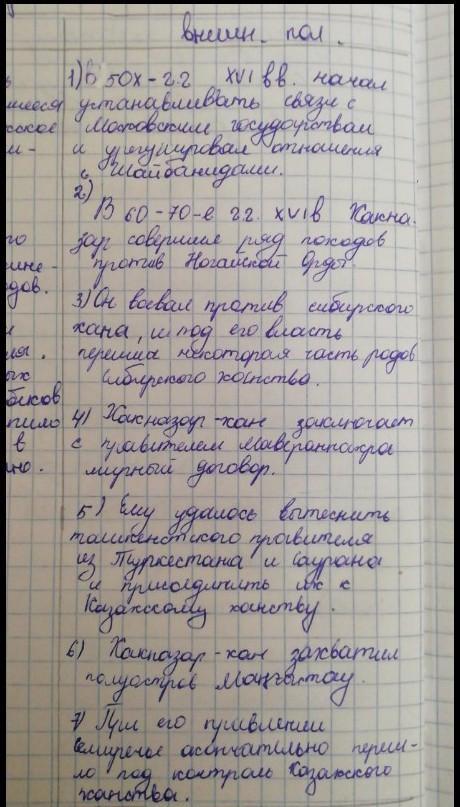 внешн. пол.
1) В 50х-гг XVI вв. начал
устанавливать связи с
Московским государствам
и урегулировал отношения
с Шайбанидами.
2)
В 60-70-е гг. XVIв Хакна-
зар совершил ряд походов
против Ногайской Орды.
3) Он воевал против сибирского
хана, и под его власть
перешла некоторая часть родов
Сибирского ханства.
4) Хакназар-хан заключает
с правителем Мавераннахра
мирный договор.
5) Ему удалось вытеснить
ташкентского правителя
из Туркестана и Саурана
и присоединить их к
Казахскому ханству.
6) Хакназар-хан захватил
полуостров Маңғыстау.
7) При его правлении
Семиречье окончательно переш-
ло под контроль Казахского
ханства.